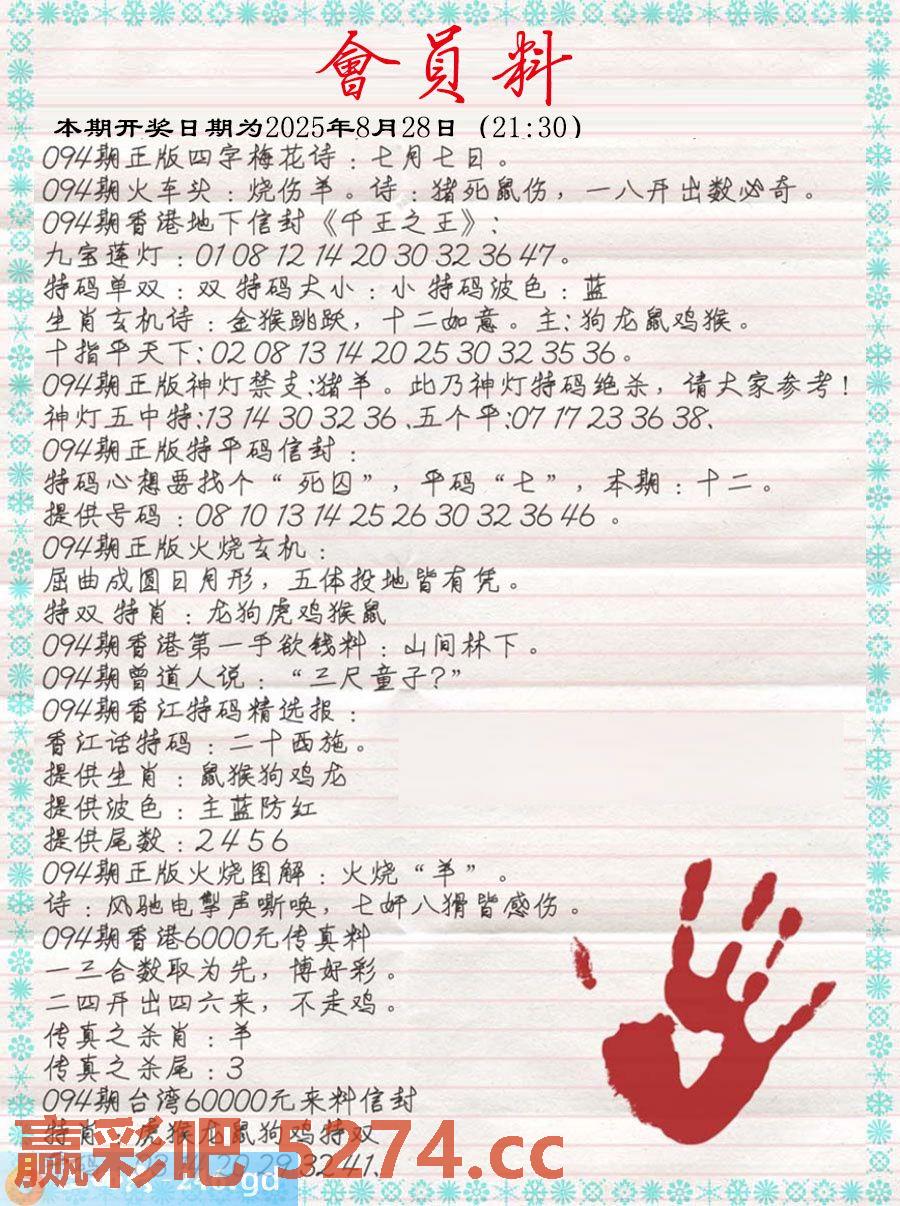 會員料
本期开奖日期为2025年8月28日（21:30）
094期正版四字梅花诗：七月七日。
094期火车头：烧伤羊。诗：猪死鼠伤，一八开出数必奇。
094期香港地下信封《千王之王》：
九宝莲灯：01 08 12 14 20 30 32 36 47。
特码单双：双 特码大小：小 特码波色：蓝
生肖玄机诗：金猴跳跃，十二如意。主：狗龙鼠鸡猴。
十指平天下：02 08 13 14 20 25 30 32 35 36。
094期正版神灯禁支：猪羊。此乃神灯特码绝杀，请大家参考！
神灯五中特：13 14 30 32 36、五个平：07 17 23 36 38、
094期正版特平码信封：
特码心想要找个“死囚”，平码“七”，本期：十二。
提供号码：08 10 13 14 25 26 30 32 36 46 。
094期正版火烧玄机：
屈曲成圆日月形，五体投地皆有凭。
特双 特肖：龙狗虎鸡猴鼠
094期香港第一手欲钱料：山间林下。
094期曾道人说：“三尺童子？”
094期香江特码精选报：
香江话特码：二十西施。
提供生肖：鼠猴狗鸡龙
提供波色：主蓝防红
提供尾数：2 4 5 6
094期正版火烧图解：火烧“羊”。
诗：风驰电掣声嘶唤，七奸八猾皆感伤。
094期香港6000元传真料
一三合数取为先，博好彩。
二四开出四六来，不走鸡。
传真之杀肖：羊
传真之杀尾：3
094期台湾60000元来料信封
特肖：虎猴龙鼠狗鸡特双
29 32 41、
赢彩吧.5274.cc